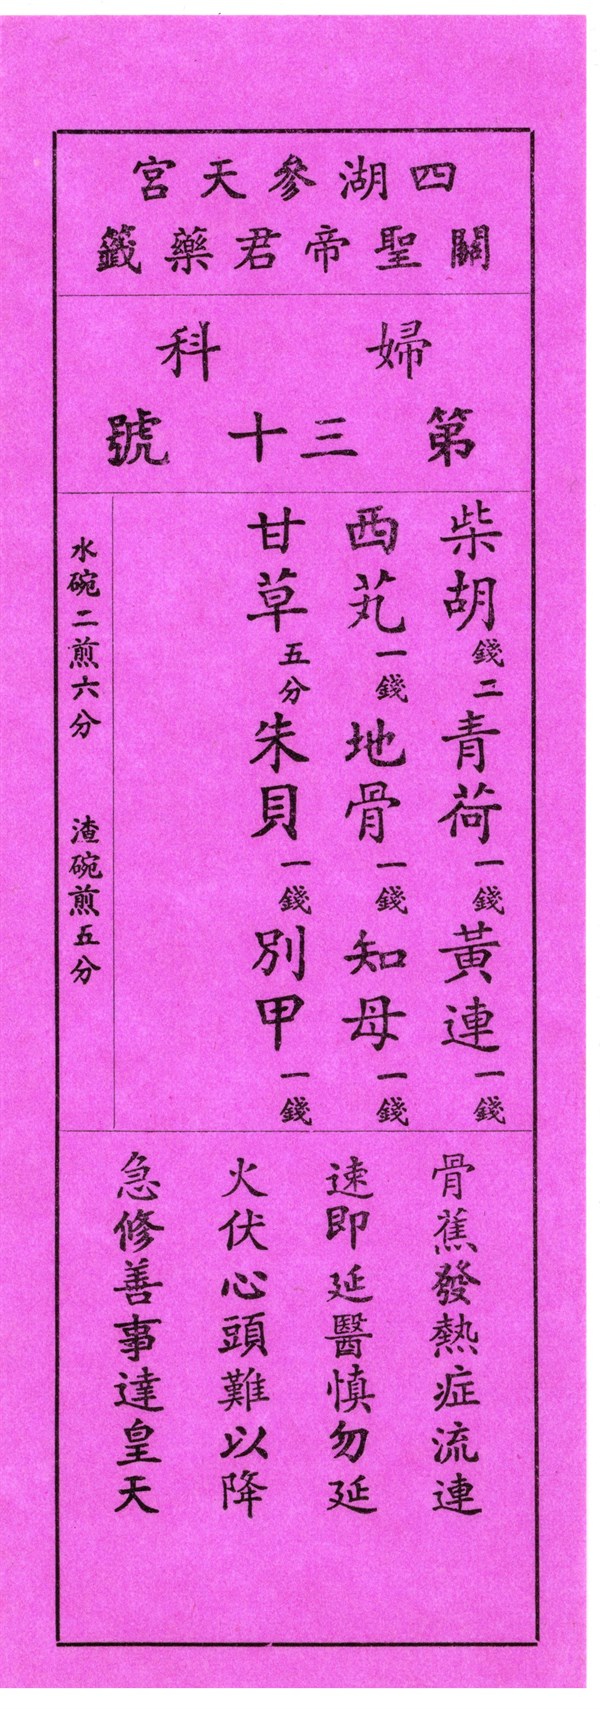 四湖參天宮
關聖帝君藥籤
婦科
第三十號
柴胡錢二青荷一錢黃連一錢
西芄一錢地骨一錢知母一錢
甘草五分朱貝一錢別甲一錢
水碗二煎六分 渣碗煎五分
骨蕉發熱症流連
速即延醫慎勿延
火伏心頭難以降
急修善事達皇天